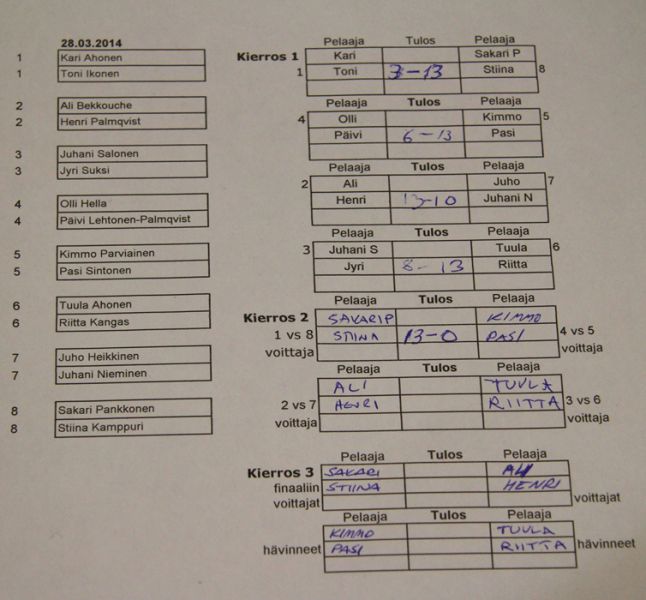 28.03.2014
1 Kari Ahonen
1 Toni Ikonen
2 Ali Bekkouche
2 Henri Palmqvist
3 Juhani Salonen
3 Jyri Suksi
4 Olli Hella
4 Päivi Lehtonen-Palmqvist
5 Kimmo Parviainen
5 Pasi Sintonen
6 Tuula Ahonen
6 Riitta Kangas
7 Juho Heikkinen
7 Juhani Nieminen
8 Sakari Pankkonen
8 Stiina Kamppuri
Pelaaja Tulos Pelaaja
Kierros 1 Kari Sakari P
1 Toni 3-13 Stiina 8
Pelaaja Tulos Pelaaja
4 Olli Kimmo 5
Päivi 6-13 Pasi
Pelaaja Tulos Pelaaja
2 Ali Juho 7
Henri 13-10 Juhani N
Pelaaja Tulos Pelaaja
3 Juhani S Tuula 6
Jyri 8-13 Riitta
Pelaaja Tulos Pelaaja
Kierros 2 SAKARI P KIMMO
1 vs 8 STIINA 13-0 PASI 4 vs 5
voittaja voittaja
Pelaaja Tulos Pelaaja
ALI TUULA
2 vs 7 HENRI RIITTA 3 vs 6
voittaja voittaja
Pelaaja Tulos Pelaaja
Kierros 3 SAKARI ALI
finaaliin STIINA HENRI
voittajat voittajat
Pelaaja Tulos Pelaaja
KIMMO TUULA
hävinneet PASI RIITTA hävinneet